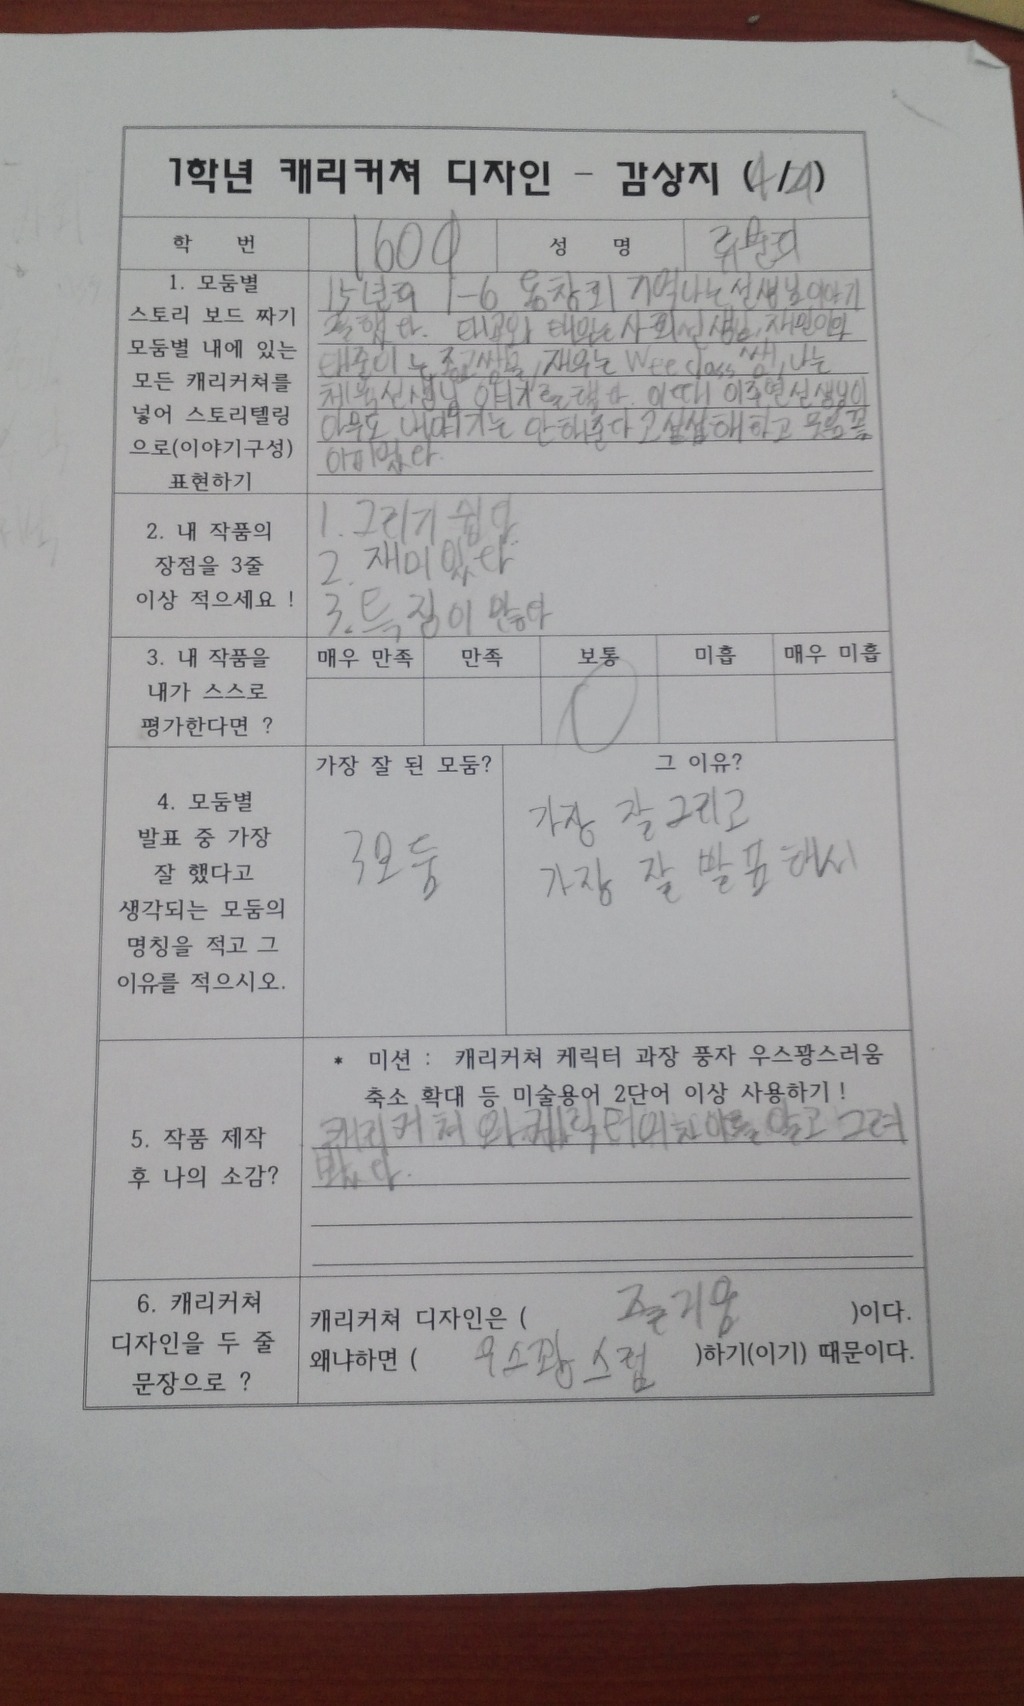 1학년 캐리커쳐 디자인 - 감상지 (4/4)
학 번 성 명
1. 모둠별
스토리 보드 짜기
모둠별 내에 있는
모든 캐리커쳐를
넣어 스토리텔링
으로(이야기구성)
표현하기
15년뒤 1-6 동창회 기억나는 선생님이야기
를했다. 사회선생님, 재민이와
재우는 Wee class 쌤, 나는
체육선생님 이야기를했다. 이때 이주연선생님이
아무도 내이야기는 안해준다고섭섭해하고
2. 내 작품의
장점을 3줄
이상 적으세요 !
1. 그리기 쉽다
2. 재미있다
3. 특징이 많다
3. 내 작품을
내가 스스로
평가한다면 ?
매우 만족 만족 보통 미흡 매우 미흡
O
4. 모둠별
발표 중 가장
잘 했다고
생각되는 모둠의
명칭을 적고 그
이유를 적으시오.
가장 잘 된 모둠?
3모둠
그 이유?
가장 잘그리고
가장 잘 발표해서
5. 작품 제작
후 나의 소감?
* 미션 : 캐리커쳐 케릭터 과장 풍자 우스꽝스러움
축소 확대 등 미술용어 2단어 이상 사용하기 !
캐리커쳐와 케릭터의차이를알고 그려
봤다.
6. 캐리커쳐
디자인을 두 줄
문장으로 ?
캐리커쳐 디자인은 ( 즐거움 )이다.
왜냐하면 ( 우스꽝스럽 )하기(이기) 때문이다.